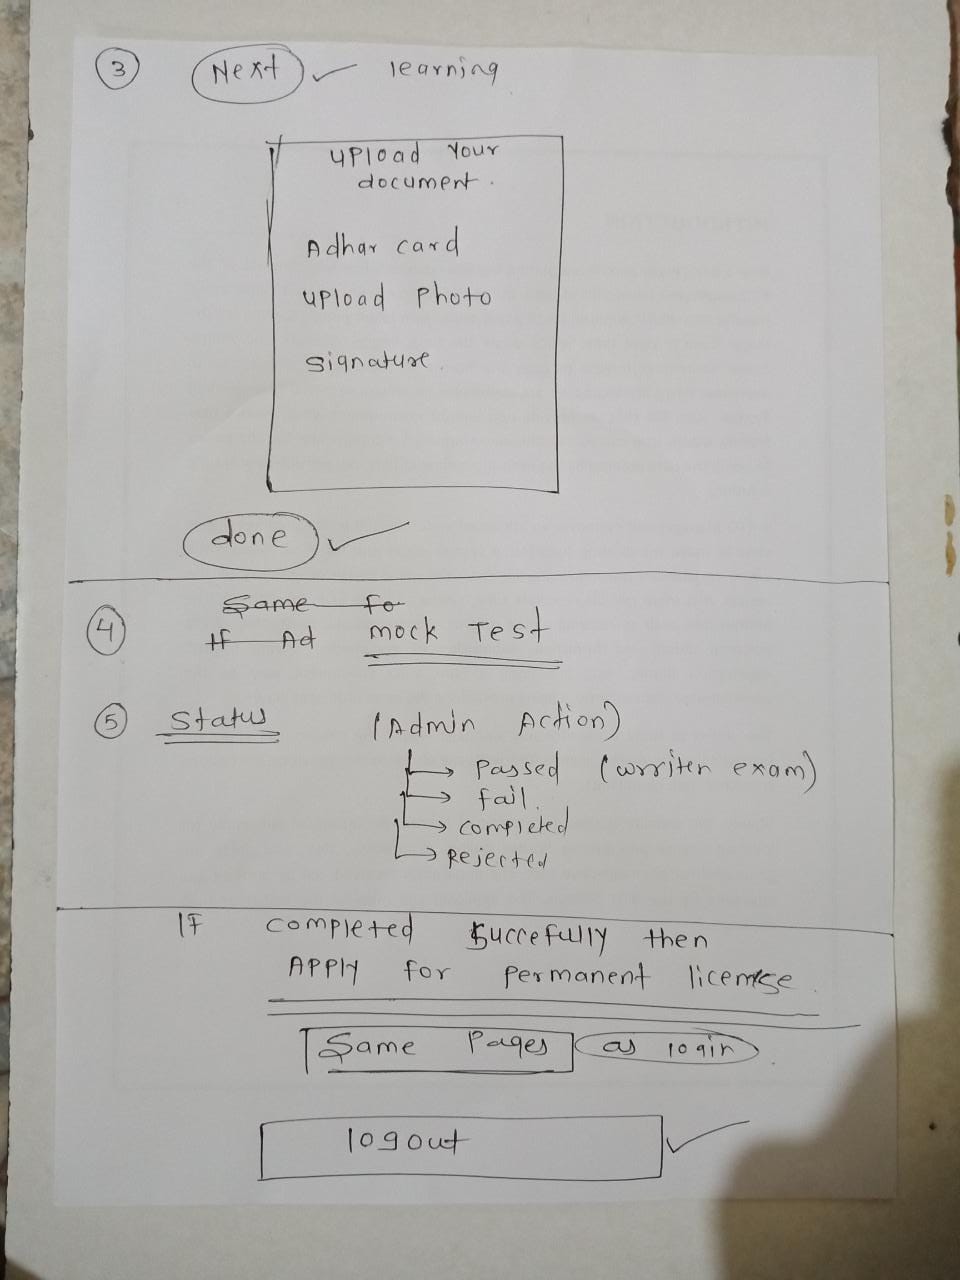 3 Next learning
upload Your
document.
Adhar card
upload Photo
signature.
done
Same fo
4 If Ad mock Test
5 Status (Admin Action)
Passed (wrriten exam)
fail.
completed
Rejected
IF completed Succefully then
APPLY for permanent license.
Same Pages as login.
logout